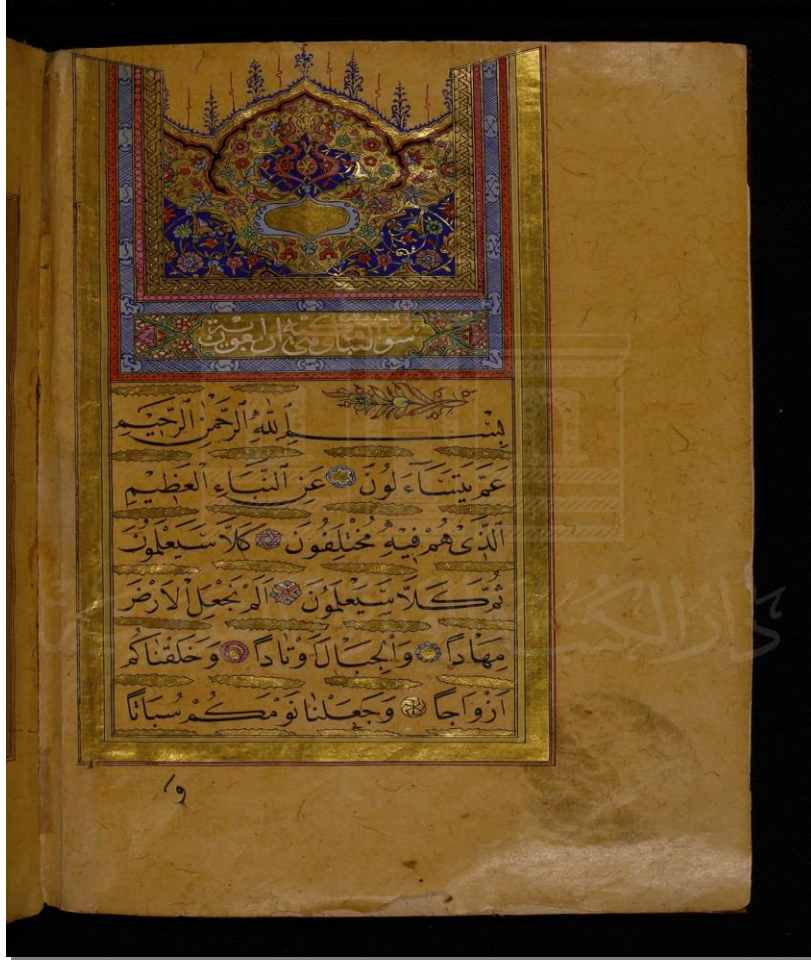 سورة النبأ مكية اربعون آية
بِسْمِ اللّٰهِ الرَّحْمٰنِ الرَّحِيْمِ
عَمَّ يَتَسَآءَلُونَ عَنِ النَّبَاءِ الْعَظِيْمِ
الَّذِى هُمْ فِيْهِ مُخْتَلِفُونَ كَلَّا سَيَعْلَمُونَ
ثُمَّ كَلَّا سَيَعْلَمُونَ اَلَمْ نَجْعَلِ الْاَرْضَ
مِهَادًا وَالْجِبَالَ اَوْتَادًا وَخَلَقْنَاكُمْ
اَزْوَاجًا وَجَعَلْنَا نَوْمَكُمْ سُبَاتًا
و
دار الكتب